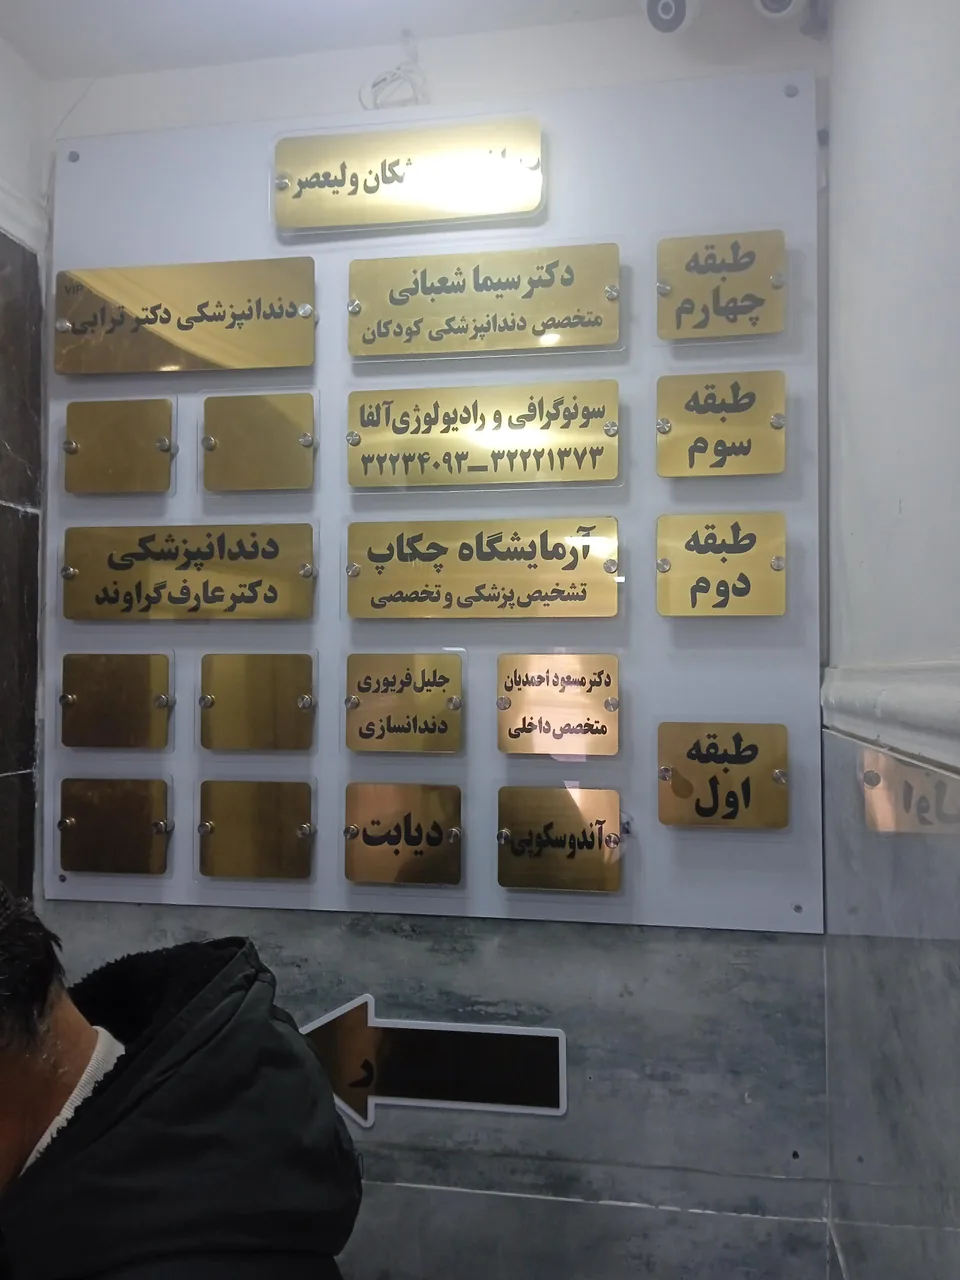 شکان ولیعصر
طبقه
چهارم
دکتر سیما شعبانی
متخصص دندانپزشکی کودکان
VIP
دندانپزشکی دکتر ترابی
طبقه
سوم
سونوگرافی و رادیولوژی آلفا
۳۲۲۳۴۰۹۳_۳۲۲۲۱۳۷۳
طبقه
دوم
آزمایشگاه چکاپ
تشخیص پزشکی و تخصصی
دندانپزشکی
دکتر عارف گراوند
طبقه
اول
دکتر مسعود احمدیان
متخصص داخلی
جلیل فریوری
دندانسازی
آندوسکوپی
دیابت